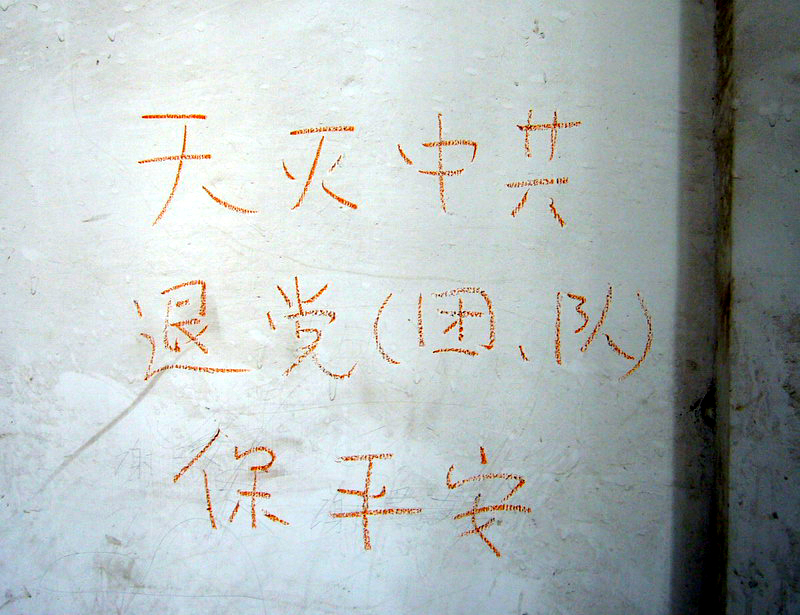 天灭中共
退党(团、队)
保平安